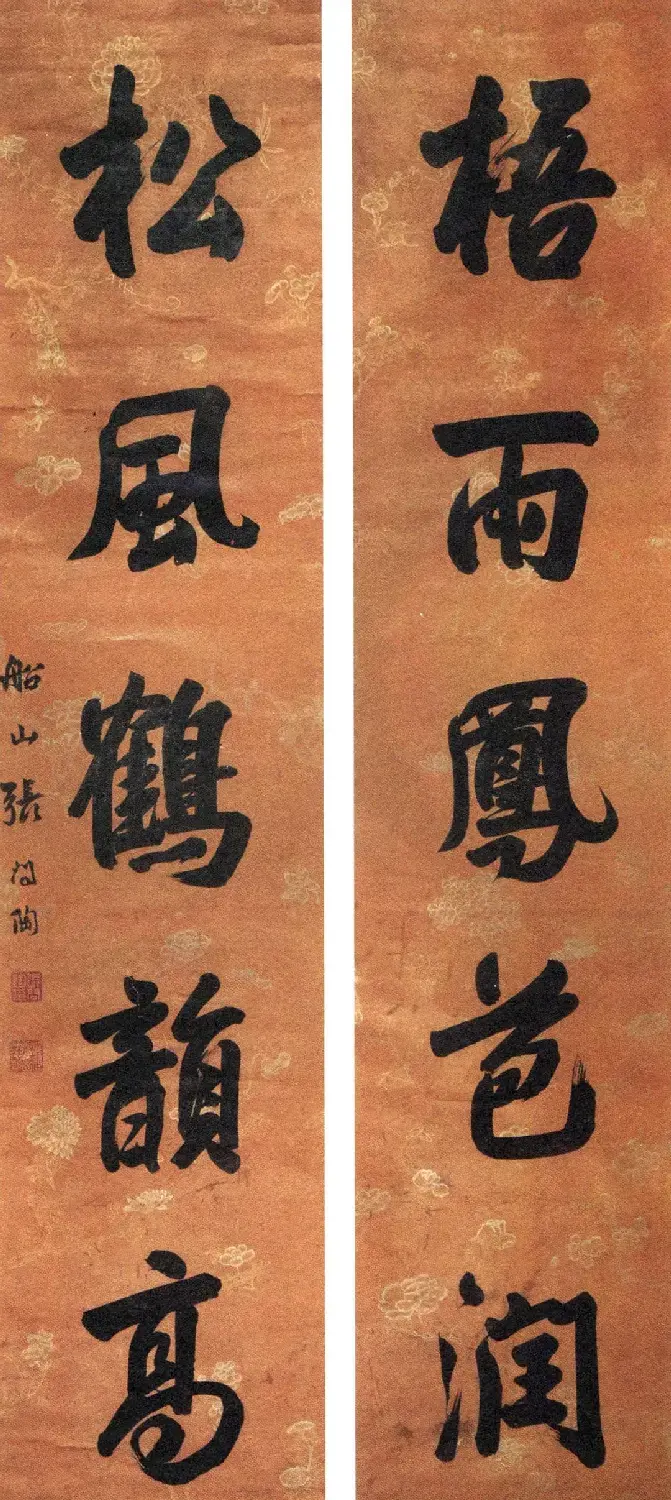 梧雨鳳芭潤
松風鶴韻高
船山張問陶